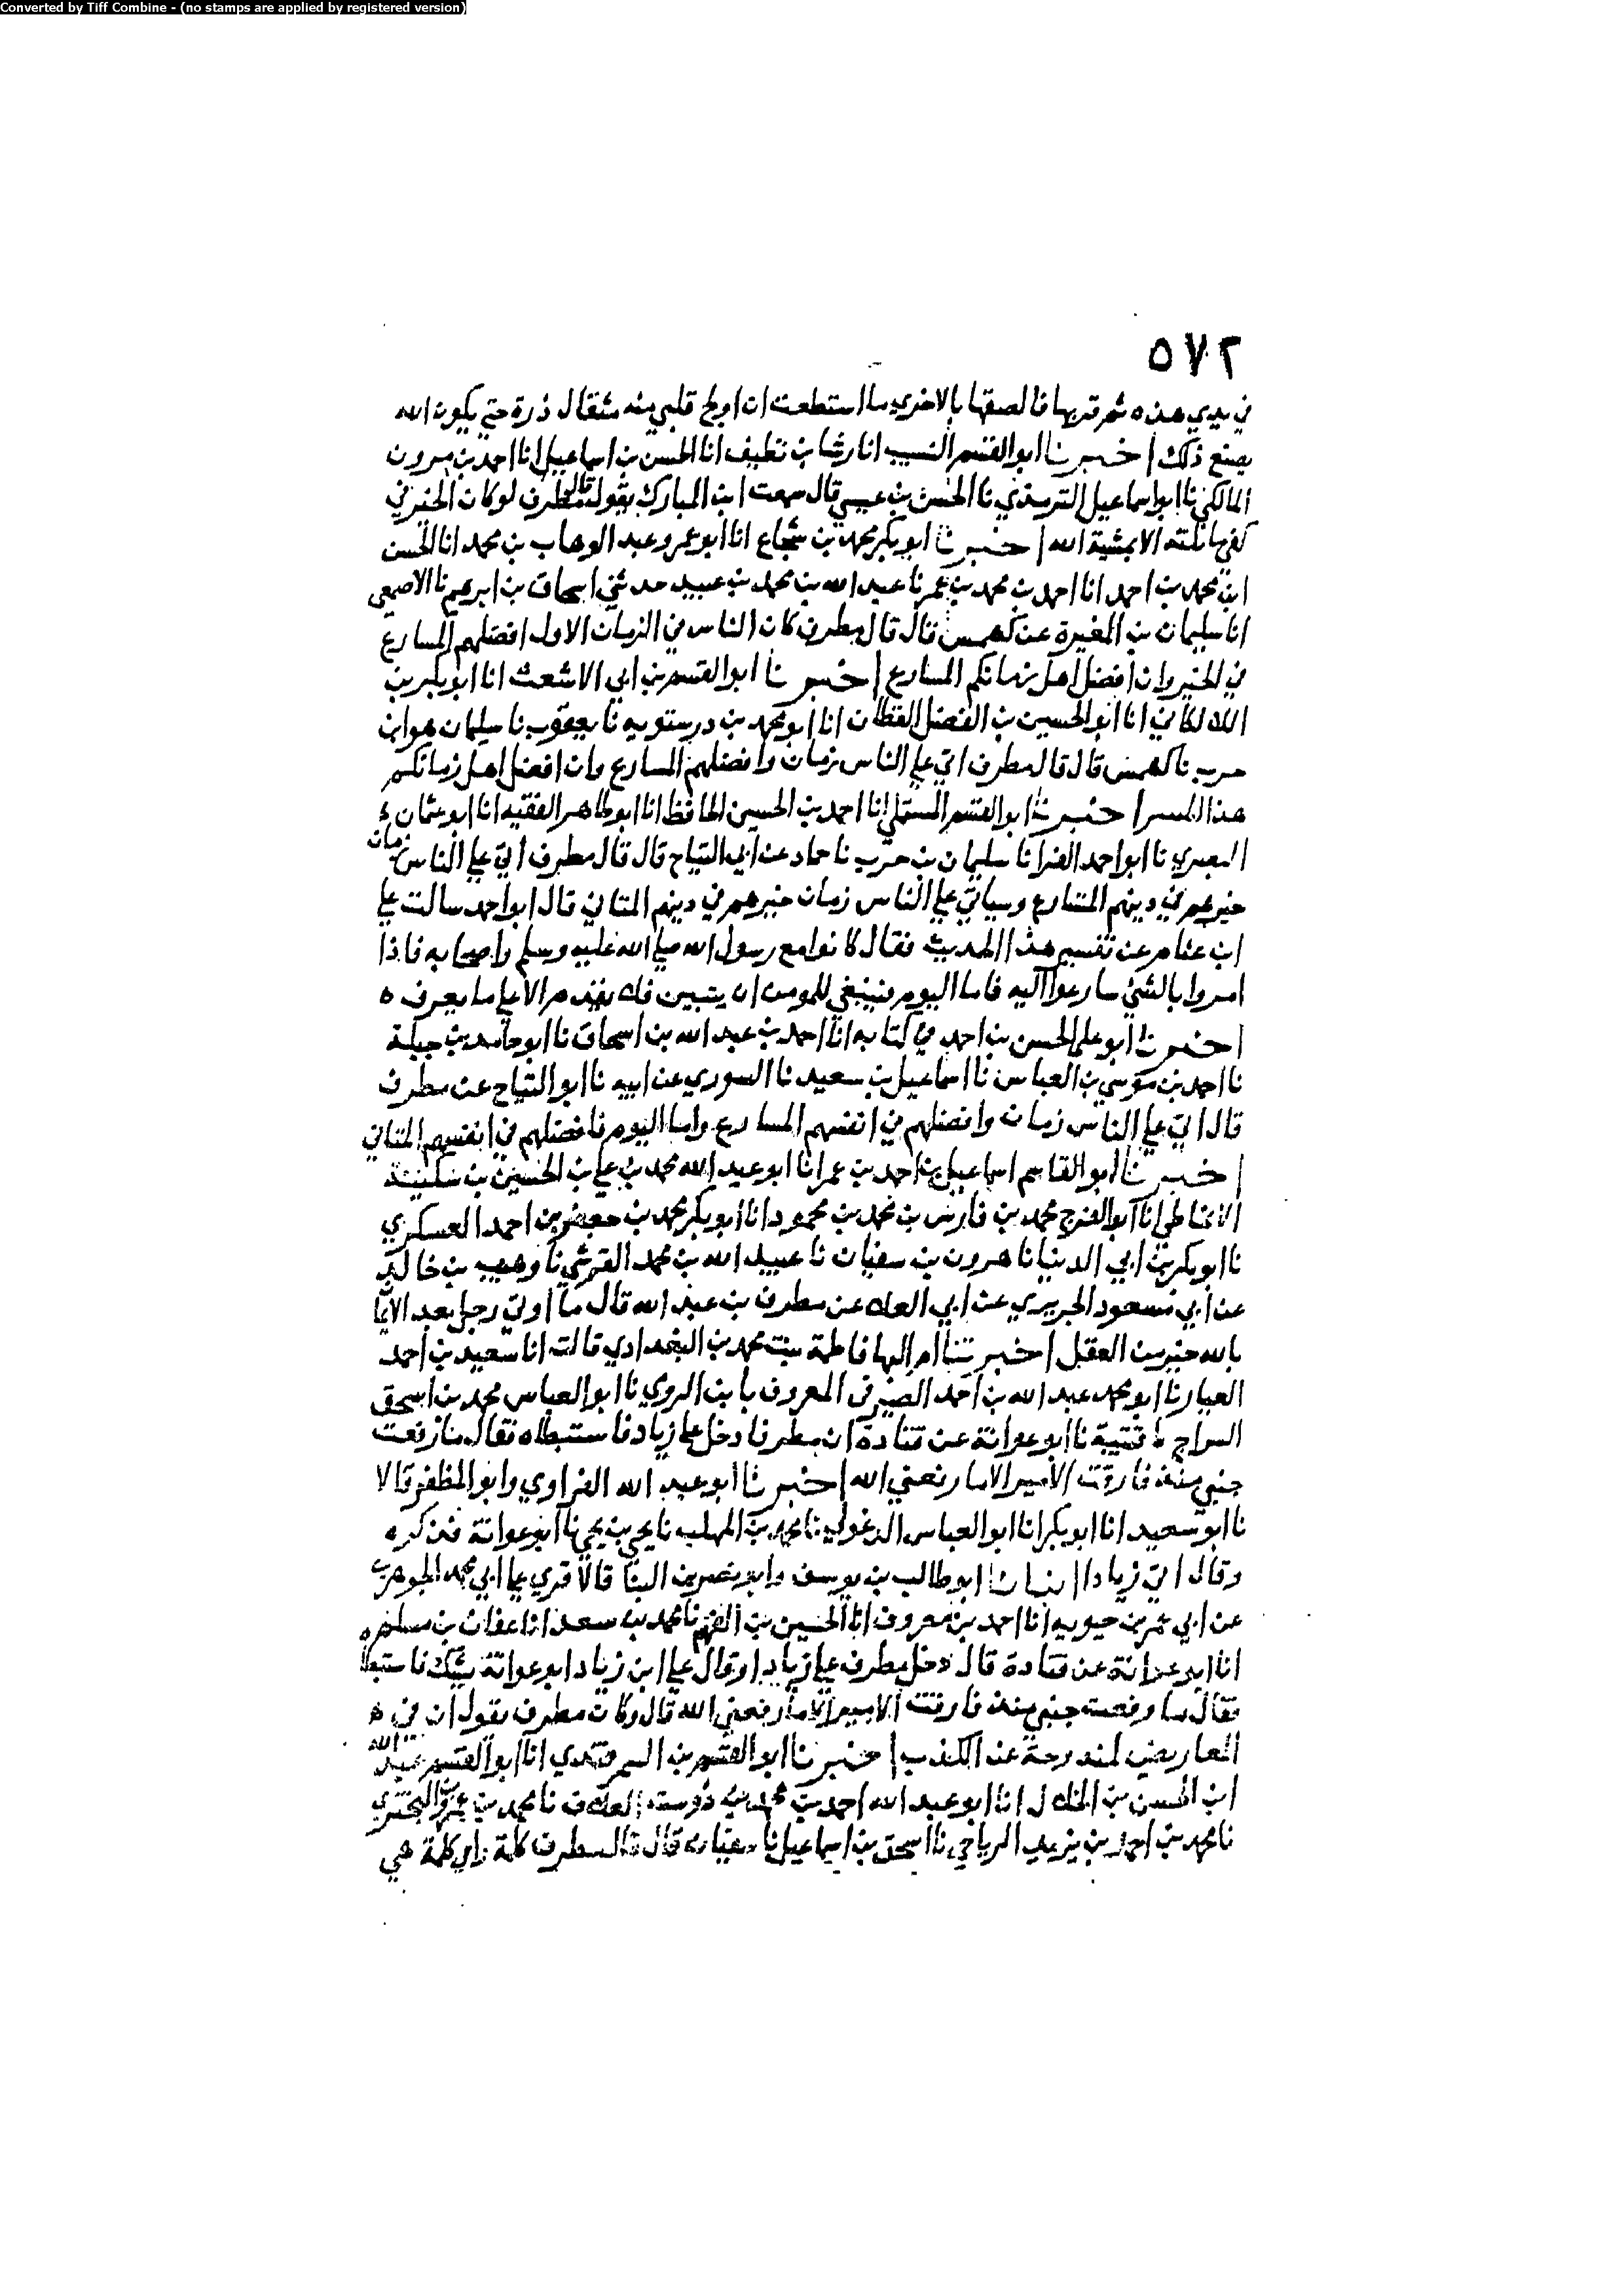 Converted by Tiff Combine - (no stamps are applied by registered version)
٥٧٢
في يدي هذه ثم قربها فالصقها بالاخري ما استطعت ان اولج قلبي منه مثقال ذرة حتي يكون الله
يصنع ذلك اخبرنا ابو القسم النسيب انا رشا بن نظيف انا الحسن بن اسماعيل انا احمد بن مرون
المالكي نا ابو اسماعيل الترمذي نا الحسن بن عيسي قال سمعت ابن المبارك يقول قال مطرف لو كان الخير في
كف احدنا الا بمشية الله اخبرنا ابو بكر محمد بن شجاع انا ابو عمرو عبد الوهاب بن محمد انا الحسن
ابن محمد بن احمد انا احمد بن محمد بن عمر نا عبد الله بن محمد بن عبيد حدثني اسحاق بن ابرهيم نا الاصمعي
انا سليمان بن المغيرة عن كهمس قال قال مطرف كان الناس في الزمان الاول افضلهم المسارع
في الخير وان افضل اهل زمانكم المسارع اخبرنا ابو القسم بن ابي الاشعث انا ابو بكر بن
اللالكاني انا ابو الحسين بن الفضل القطان انا ابو محمد بن درستويه نا يعقوب نا سليمان هو ابن
حرب نا كهمس قال قال مطرف اتي علي الناس زمان وافضلهم المسارع وان افضل اهل زمانكم
هذا اخبرنا ابو القسم المستملي انا احمد بن الحسين الحافظ انا ابو طاهر الفقيه انا ابو عثمان
البصري نا ابو احمد الفرا نا سليمان بن حرب نا حماد عن ابي التياح قال قال مطرف اتي علي الناس زمان
خيرهم في دينهم المتسارع وسياتي علي الناس زمان خيرهم في دينهم المتاني قال ابو احمد سالت علي
ابن عثام عن تفسير هذا الحديث فقال كانوا مع رسول الله صلي الله عليه وسلم واصحابه فاذا
امروا بالشي سارعوا اليه فاما اليوم فينبغي للمومن ان يتبين فلا يقدم الا علي ما يعرف ه
اخبرنا ابو علي الحسن بن احمد في كتابه انا احمد بن عبد الله بن اسحاق نا ابو حامد بن جبلة
نا احمد بن موسي بن العباس نا اسماعيل بن سعيد نا السوري عن ابيه نا ابو التياح عن مطرف
قال اتي علي الناس زمان وافضلهم في انفسهم المسارع واما اليوم فافضلهم في انفسهم المتاني
اخبرنا ابو القاسم اسماعيل بن احمد بن عمر انا ابو عبد الله محمد بن علي بن الحسين بن سكينة
الانماطي انا ابو الفرج محمد بن فارس بن محمد بن محمود انا ابو بكر محمد بن جعفر بن احمد العسكري
نا ابو بكر بن ابي الدنيا نا هرون بن سفيان نا عبيد الله بن محمد القرشي نا وهيب بن خالد
عن ابي مسعود الجريري عن ابي العلاء عن مطرف بن عبد الله قال ما اوتي رجل بعد الايمان
بالله خير من العقل اخبرتنا ام البها فاطمة بنت محمد بن البغدادي قالت انا سعيد بن احمد
العيار نا ابو محمد عبد الله بن احمد الصيرفي المعروف بابن الروي نا ابو العباس محمد بن اسحق
السراج نا قتيبة نا ابو عوانة عن قتادة ان مطرفا دخل علي زياد فاستبطاه فقال ما رفعت
جنبي منذ فارقت الامير الا ما رفعني الله اخبرنا ابو عبد الله الفراوي وابو المظفر قالا
نا ابو سعيد انا ابو بكر انا ابو العباس الدغولي نا محمد بن المهلب نا يحيي بن يحيي نا ابو عوانة فذكره
وقال اتي زيادا انبانا ابو طالب بن يوسف وابو نصر بن البنا قالا قري علي ابي محمد الجوهري
عن ابي عمر بن حيويه انا احمد بن معروف انا الحسين بن الفهم نا محمد بن سعد انا عفان بن مسلم ه
انا ابو عوانة عن قتادة قال دخل مطرف علي زياد او قال علي ابن زياد ابو عوانة يشك فاستبطا
فقال ما رفعت جنبي منذ فارقت الامير الا ما رفعني الله قال وكان مطرف يقول ان في ه
المعاريض لمندوحة عن الكذب اخبرنا ابو القسم بن السمرقندي انا ابو القسم عبد الله
ابن الحسن بن الخلال انا ابو عبد الله احمد بن محمد بن دوست العلاف نا محمد بن عمرو بن البختري
نا محمد بن احمد بن يزيد الرياحي نا اسحق بن اسماعيل نا سفيان قال قال مطرف كلمة واي كلمة هي